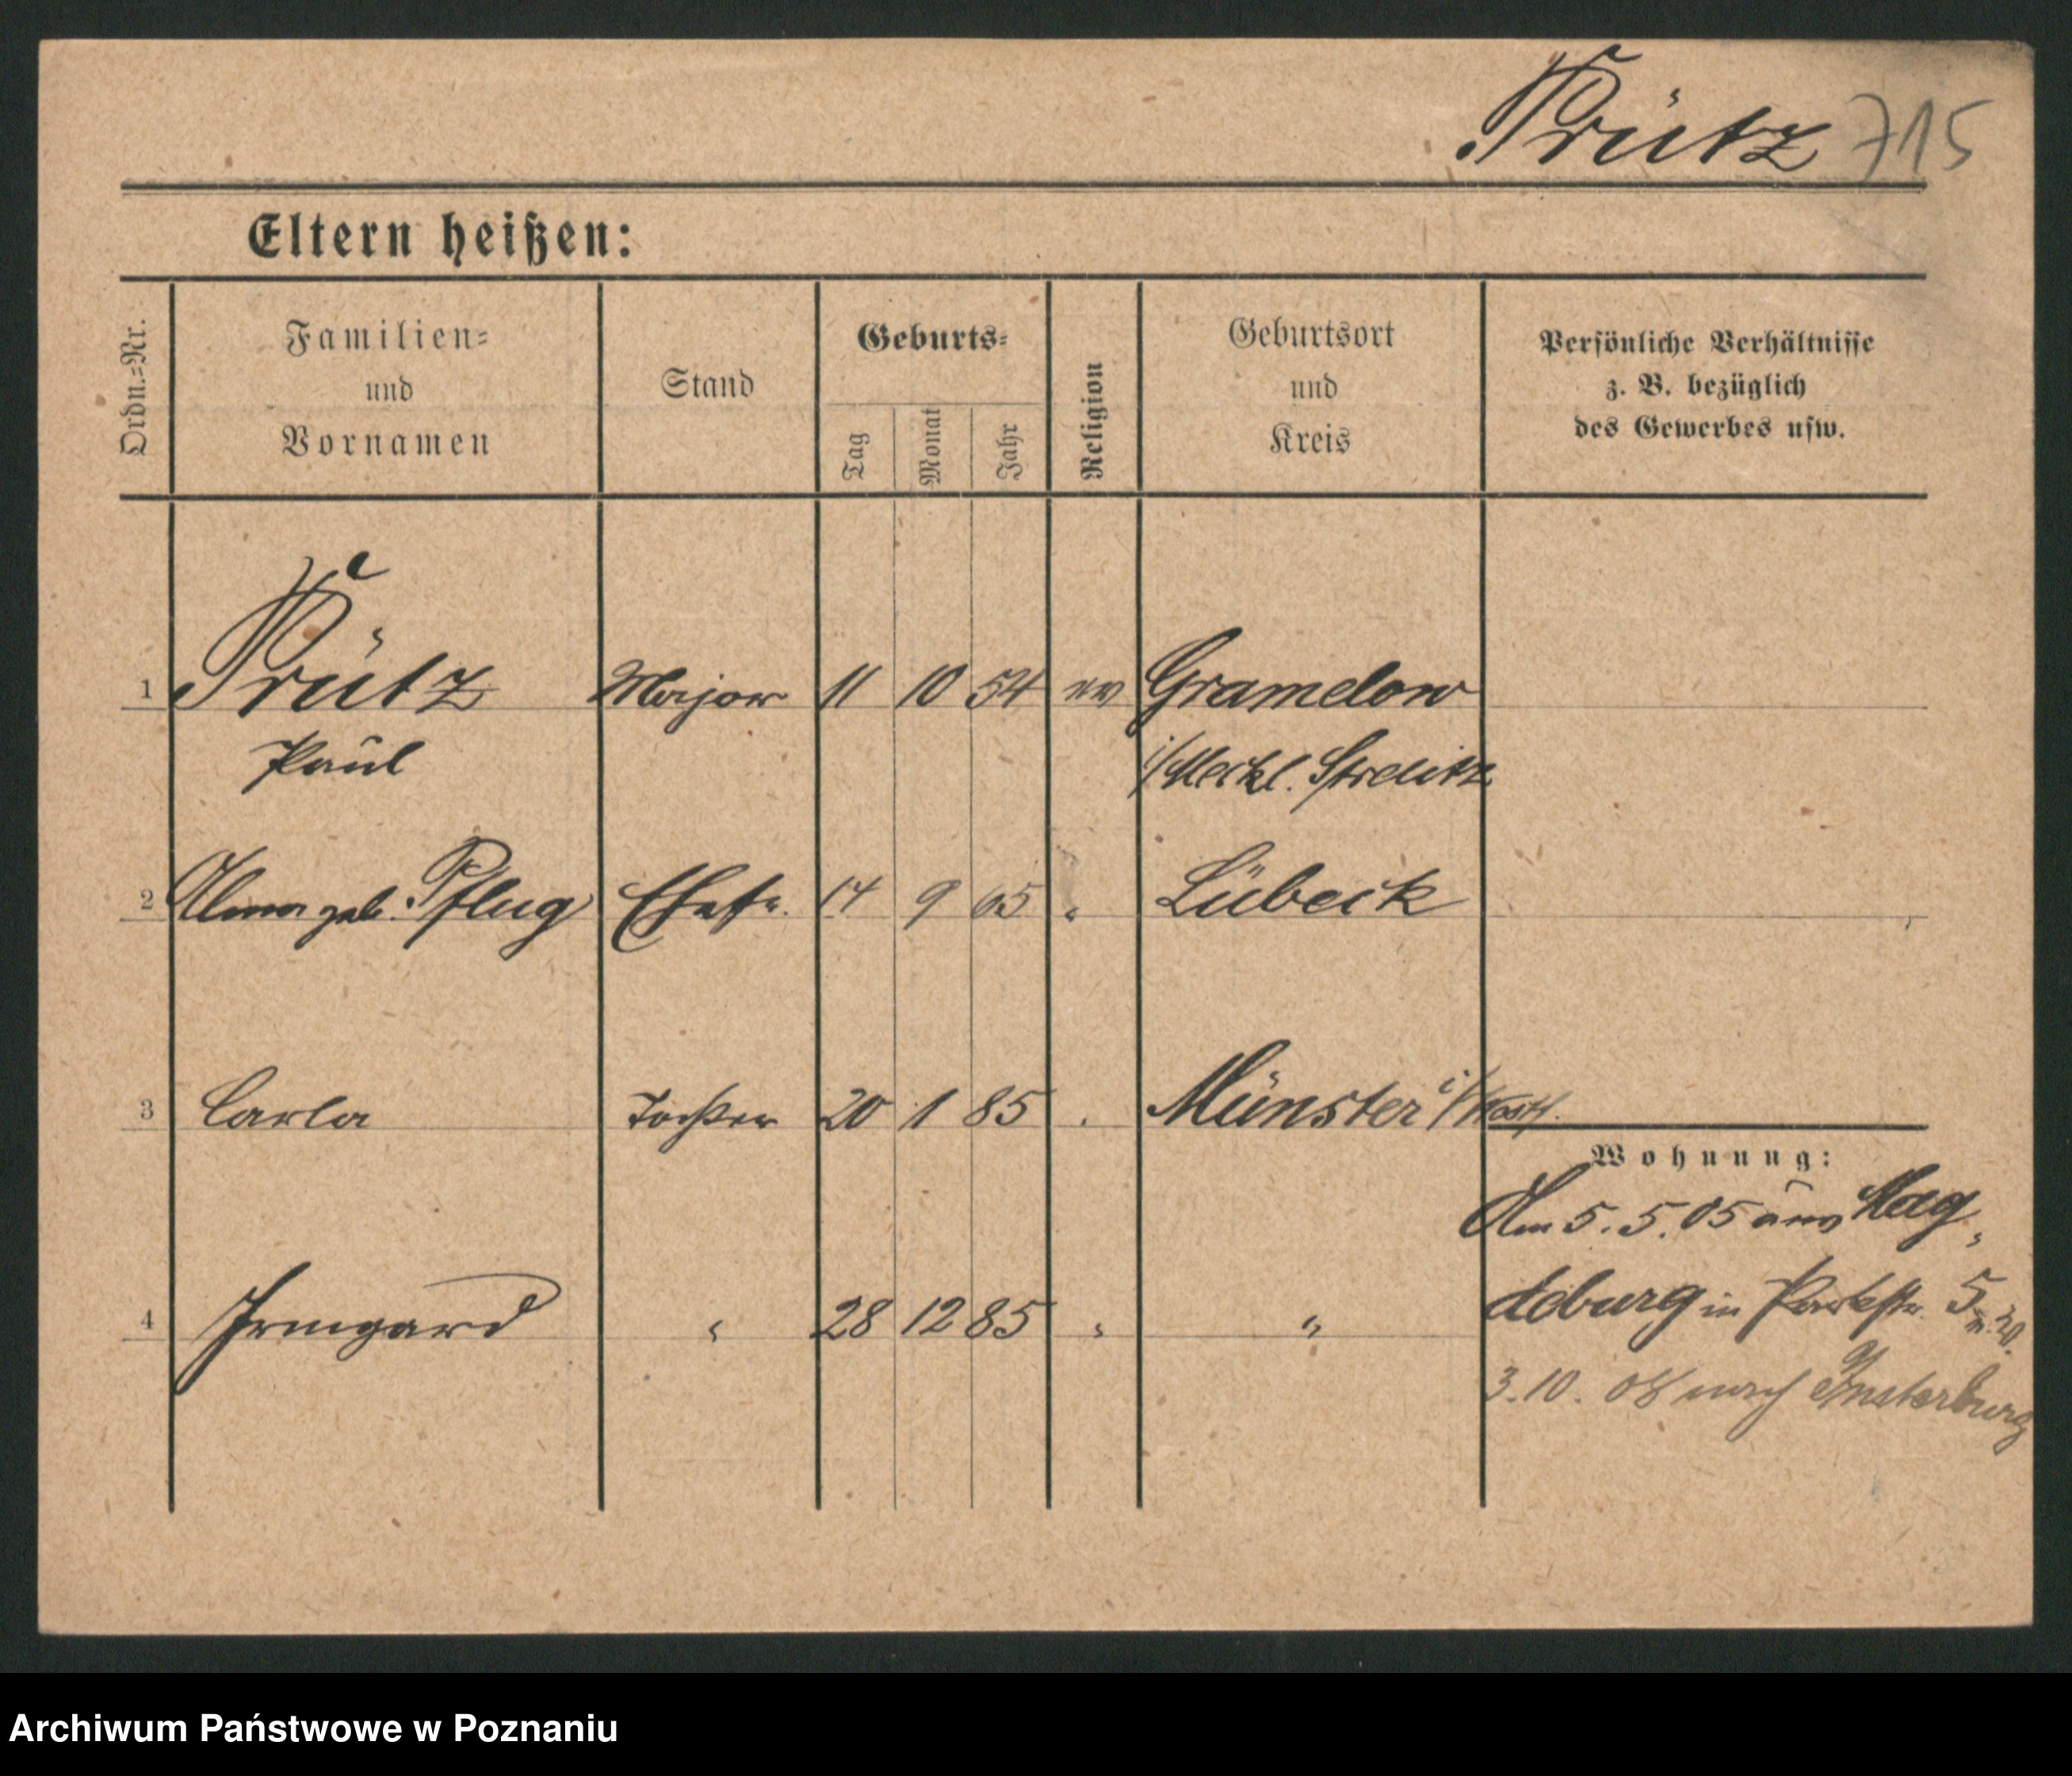 Prütz 715
Eltern heißen:
Ordn.-Nr.
Familien-
und
Vornamen
Stand
Geburts-
Tag
Monat
Jahr
Religion
Geburtsort
und
Kreis
Persönliche Verhältnisse
z. B. bezüglich
des Gewerbes usw.
1 Prütz Major 11 10 54 ev Gramelow
Paul i/Meckl. Strelitz
2 Alma geb. Pflug Ehefr. 14 9 65 " Lübeck
3 Carla Tochter 20 1 85 " Münster i/Westf.
Wohnung:
Am 5. 5. 05 aus Mag-
4 Irmgard " 28 12 85 " "
deburg in Parkstr. 5
3. 10. 08 nach Insterburg
Archiwum Państwowe w Poznaniu